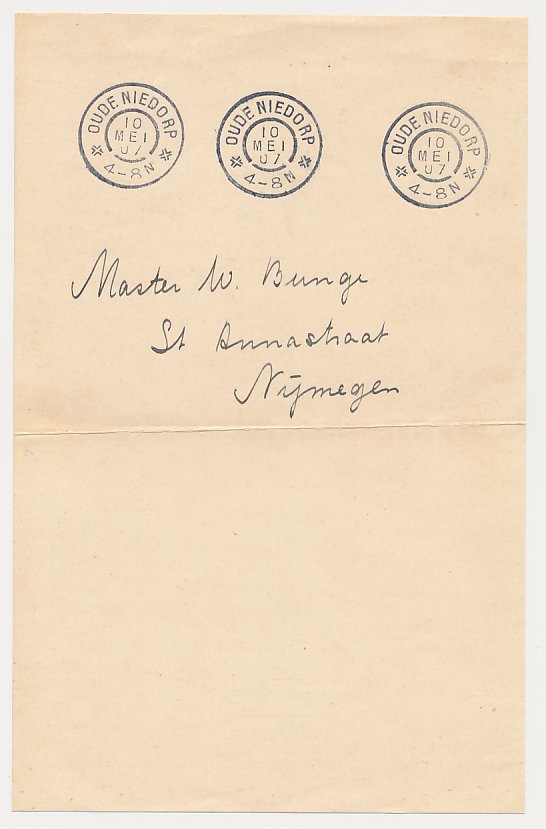 OUDE NIEDORP
10
MEI
07
4-8N
OUDE NIEDORP
10
MEI
07
4-8N
OUDE NIEDORP
10
MEI
07
4-8N
Master W. Bunge
St Annastraat
Nijmegen